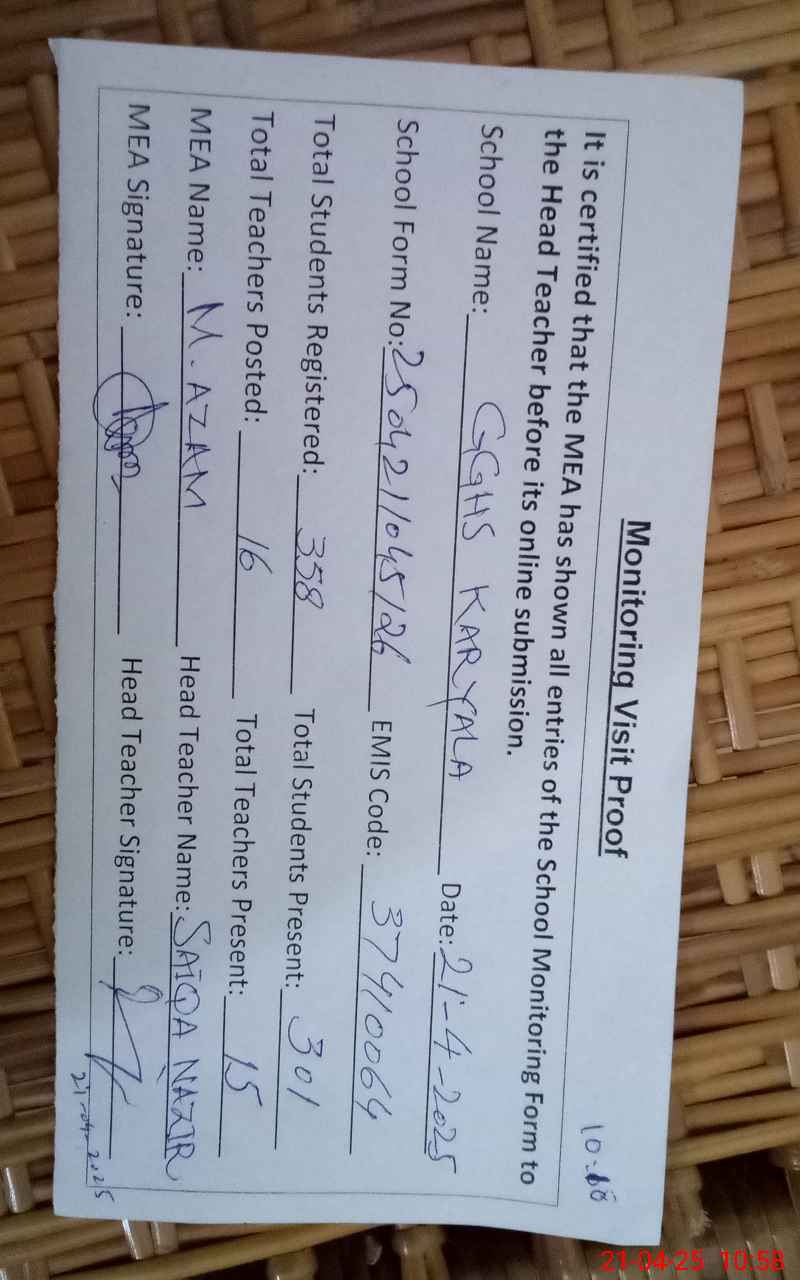 Monitoring Visit Proof
It is certified that the MEA has shown all entries of the School Monitoring Form to
the Head Teacher before its online submission.
School Name: GGHS KARYALA Date: 21-4-2025
School Form No: 2504211045126 EMIS Code: 37410064
Total Students Registered: 358 Total Students Present: 301
Total Teachers Posted: 16 Total Teachers Present: 15
MEA Name: M. AZAM Head Teacher Name: SAIQA NAZIR
MEA Signature: Head Teacher Signature:
21-04-2025
21-04-25 10:58